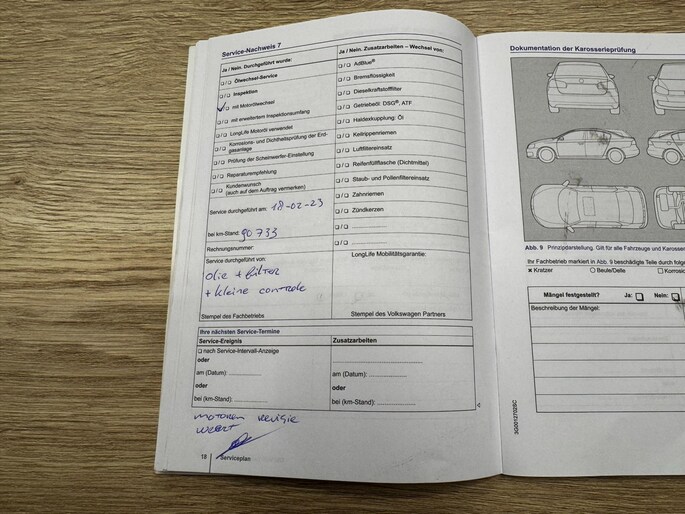 Service-Nachweis 7
Ja / Nein. Durchgeführt wurde:
❑ / ❑ Ölwechsel-Service
❑ / ❑ Inspektion
❑ / ❑ mit Motorölwechsel
❑ / ❑ mit erweitertem Inspektionsumfang
❑ / ❑ LongLife Motoröl verwendet
❑ / ❑ Korrosions- und Dichtheitsprüfung der Erdgasanlage
❑ / ❑ Prüfung der Scheinwerfer-Einstellung
❑ / ❑ Reparaturempfehlung
❑ / ❑ Kundenwunsch
(auch auf dem Auftrag vermerken)
Service durchgeführt am: 18-02-23
bei km-Stand: 90733
Rechnungsnummer:
Service durchgeführt von:
olie + filter
+ kleine controle
Stempel des Fachbetriebs
Ja / Nein. Zusatzarbeiten – Wechsel von:
❑ / ❑ AdBlue®
❑ / ❑ Bremsflüssigkeit
❑ / ❑ Dieselkraftstofffilter
❑ / ❑ Getriebeöl: DSG®, ATF
❑ / ❑ Haldexkupplung: Öl
❑ / ❑ Keilrippenriemen
❑ / ❑ Luftfiltereinsatz
❑ / ❑ Reifenfüllflasche (Dichtmittel)
❑ / ❑ Staub- und Pollenfiltereinsatz
❑ / ❑ Zahnriemen
❑ / ❑ Zündkerzen
❑ / ❑
❑ / ❑
LongLife Mobilitätsgarantie:
Stempel des Volkswagen Partners
Ihre nächsten Service-Termine
Service-Ereignis
Zusatzarbeiten
❑ nach Service-Intervall-Anzeige
oder
am (Datum):
am (Datum):
oder
oder
bei (km-Stand):
bei (km-Stand):
motoren revisie
weert
18 Serviceplan
Dokumentation der Karosserieprüfung
Abb. 9 Prinzipdarstellung. Gilt für alle Fahrzeuge und Karosser
Ihr Fachbetrieb markiert in Abb. 9 beschädigte Teile durch folge
x Kratzer
O Beule/Delle
❑ Korrosio
Mängel festgestellt? Ja: ❑ Nein:
Beschreibung der Mängel:
3G0012702SC